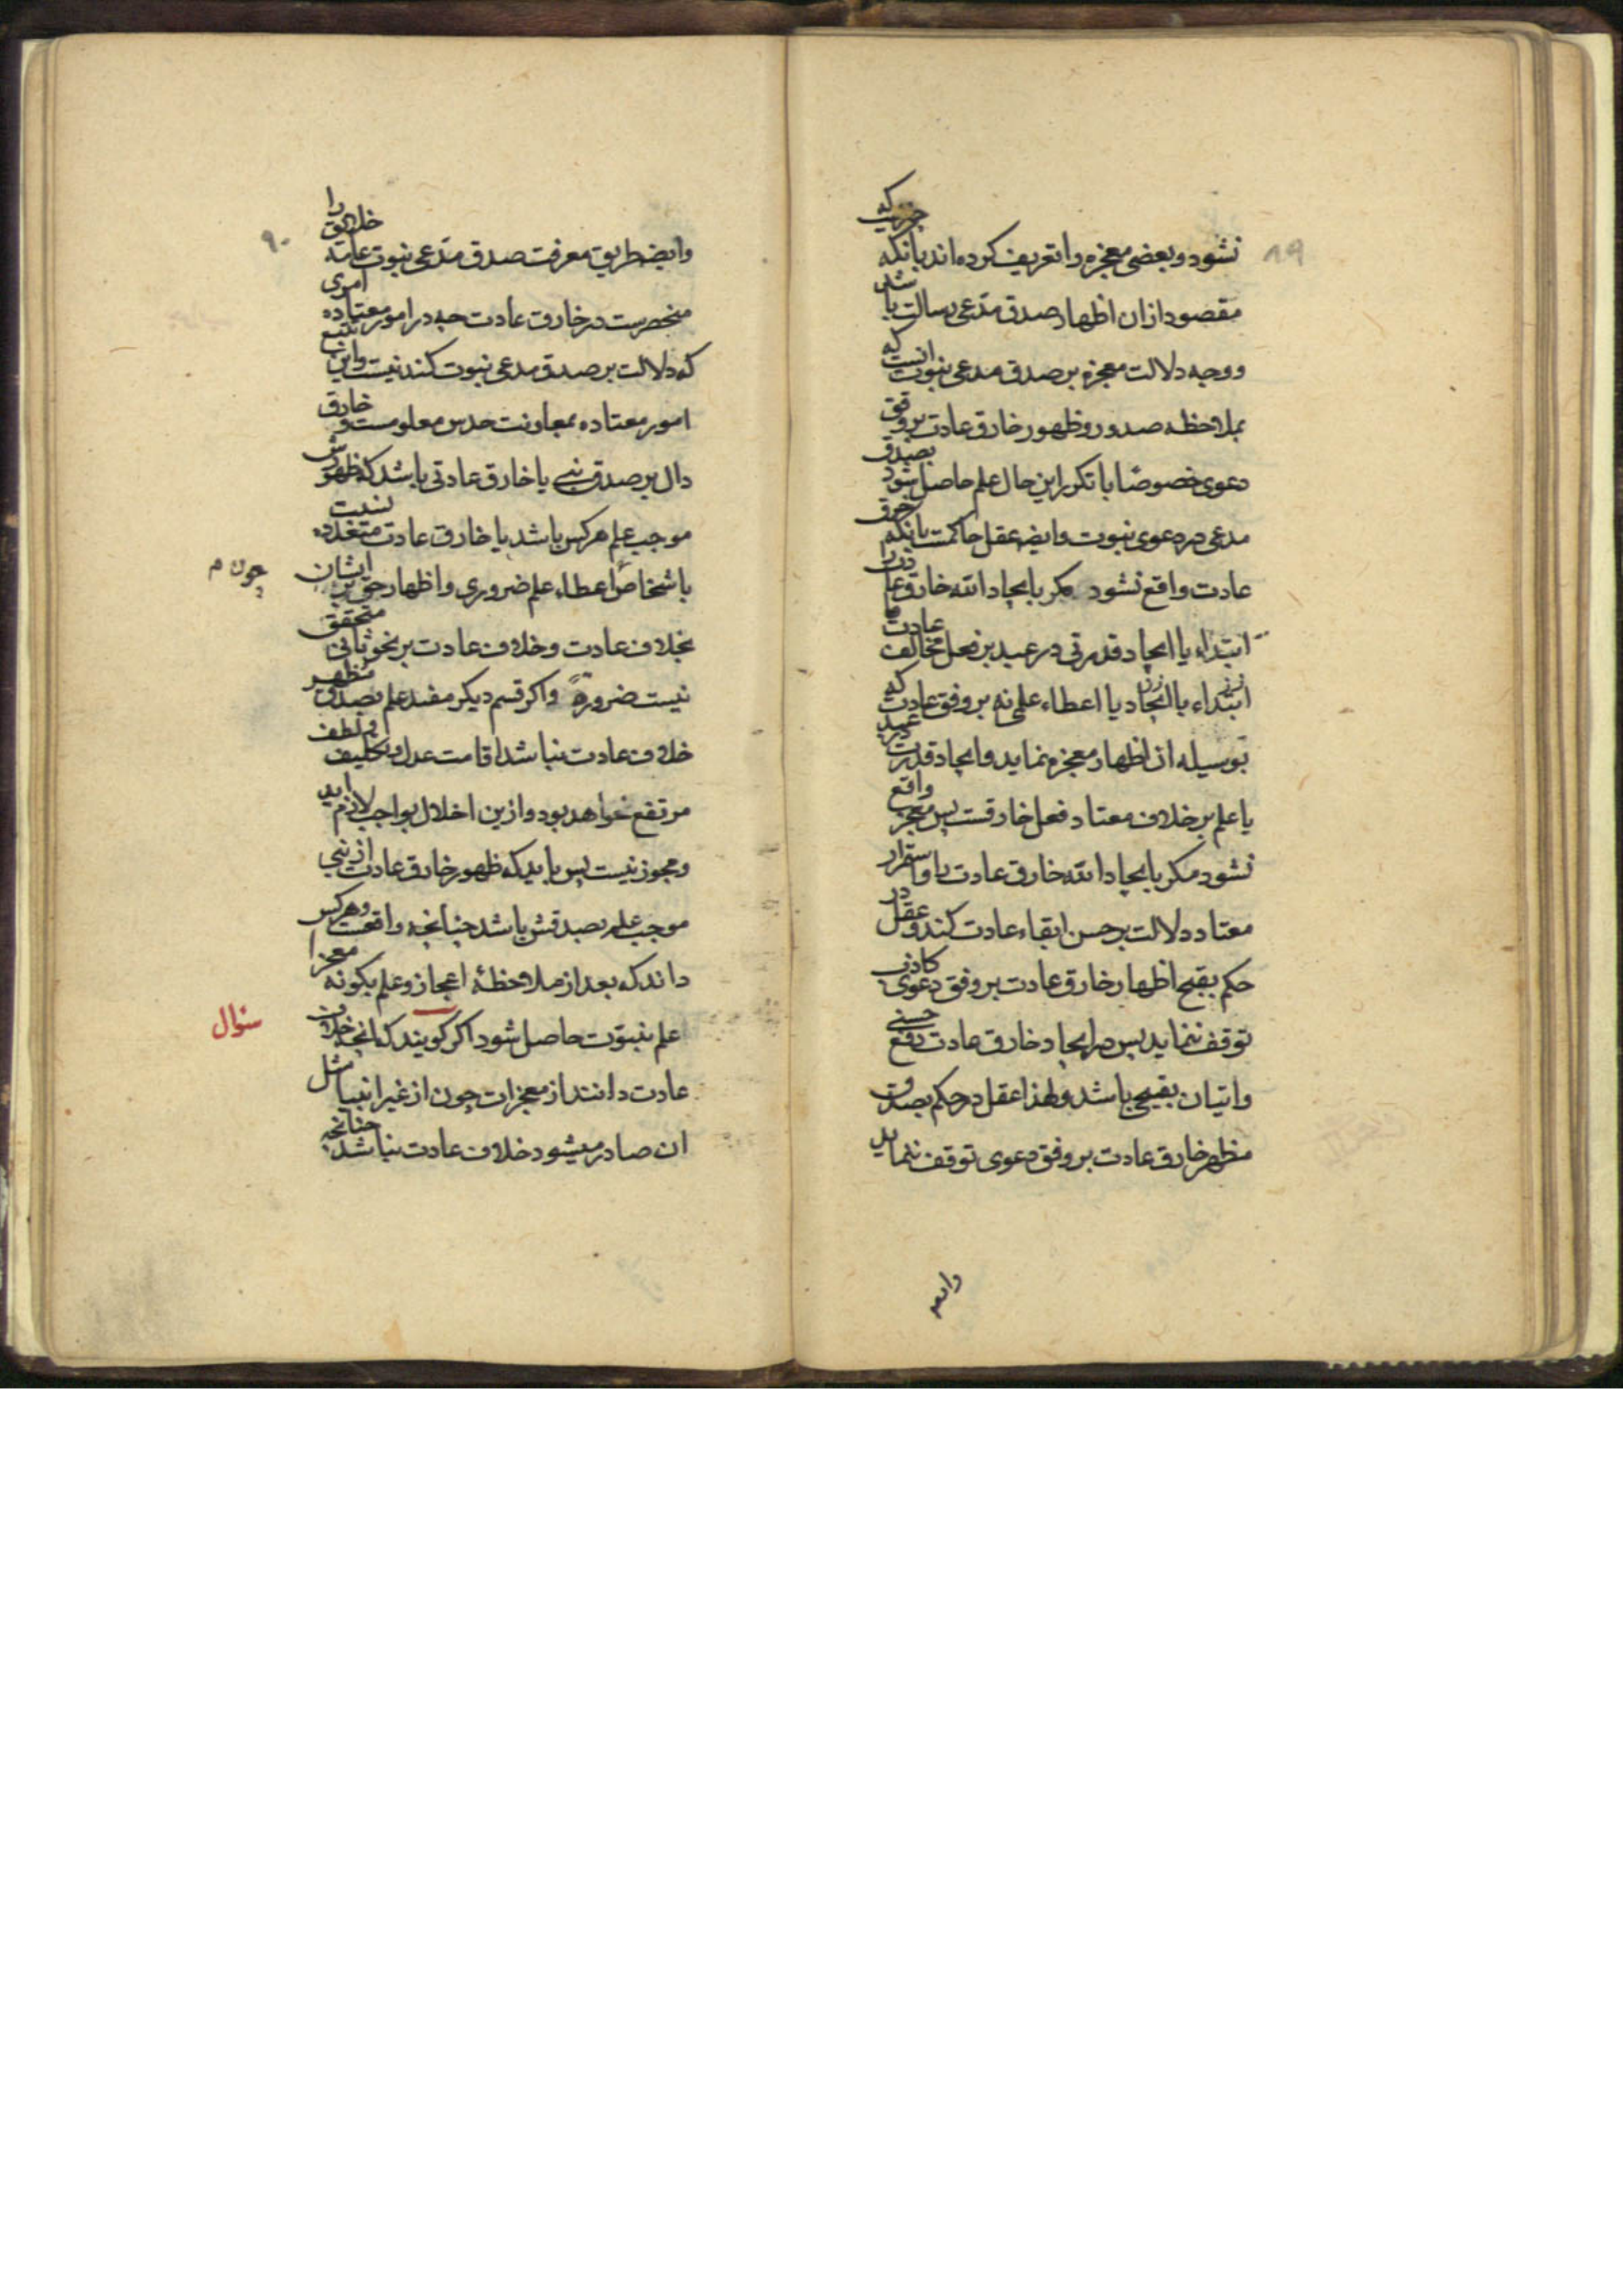 ۸۹
نشود و بعضی معجزه را تعریف کرده اند بانکه چیزیست که
مقصود ازان اظهار صدق مدّعی رسالت باشد
و وجه دلالت معجزه بر صدق مدعی نبوت انست که
بملاحظه صدور و ظهور خارق عادت بر وفق
دعوی خصوصًا با تکرر این حال علم حاصل شود بصدق
مدعی در دعوی نبوت و ایضه عقل حاکمست بانکه خرق
عادت واقع نشود مکر بایجاد الله خارق عادت را
ابتداء یا ایجاد قدرتی در عبد بر فعل مخالف عادت
ابتداء یا ایجاد یا اعطاء علمی نه بر وفق عادت که
بوسیله ان اظهار معجزه نماید و ایجاد قدرت در عبد
یا علم بر خلاف معتاد فعل خارقست پس معجز واقع
نشود مکر بایجاد الله خارق عادت را و استمرار
معتاد دلالت بر حسن ابقاء عادت کند و عقل در
حکم بقبح اظهار خارق عادت بر وفق دعوی کاذب
توقف ننماید پس در ایجاد خارق عادت رفع حسنی
و اتیان بقبیحی باشد و لهذا عقل در حکم بصدق
مظهر خارق عادت بر وفق دعوی توقف ننماید
وایضه
۹۰
و ایضه طریق معرفت صدق مدّعی نبوت عامه خلایق را
منحصرست در خارق عادت چه در امور معتاده امری
که دلالت بر صدق مدعی نبوت کند نیست و این بتتبع
امور معتاده بمعاونت حدس معلومست و خارق
دال بر صدق نبی یا خارق عادتی باشد که ظهورش
موجب علم هر کس باشد یا خارق عادت متعدده نسبت
باشخاص اعطاء علم ضروری و اظهار حق بر ایشان
چون م
بخلاف عادت و خلاف عادت بر نحو ثانی متحقق
نیست ضرورةً و اکر قسم دیکر مفید علم بصدق مظهر
خلاف عادت نباشد اقامت عدل و تکلیف و لطف
مرتفع خواهد بود و ازین اخلال بواجب لازم اید
و مجوز نیست پس باید که ظهور خارق عادت از نبی
موجب علم بصدقش باشد چنانچه واقعست و هر کس
داند که بعد از ملاحظهٔ اعجاز و علم بکونه معجزا
علم بنبوّت حاصل شود اکر کویند که انچه خلاف
سئوال
عادت دانند از معجزات چون از غیر انبیا مثل
ان صادر میشود خلاف عادت نباشد چنانچه